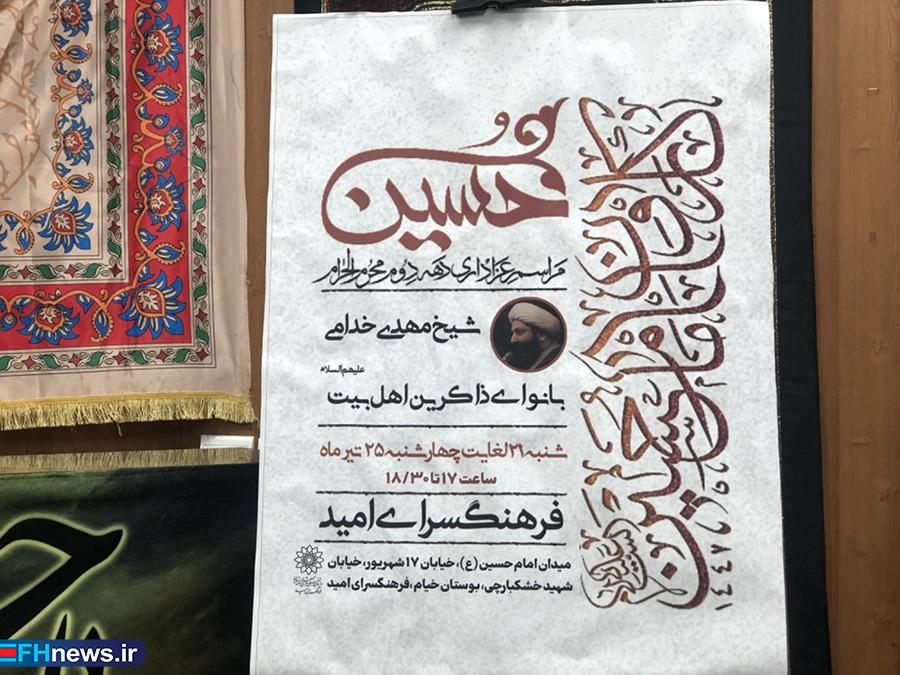 حسین
مراسم عزاداری دهه دوم محرم الحرام
شیخ مهدی خدامی
علیهم السلام
بانوای ذاکرین اهل بیت
شنبه ۲۱ لغایت چهارشنبه ۲۵ تیر ماه
ساعت ۱۷ تا ۱۸/۳۰
فرهنگسرای امید
میدان امام حسین (ع)، خیابان ۱۷ شهریور، خیابان
شهید خشکبارچی، بوستان خیام، فرهنگسرای امید
۱۴۴۷
FHnews.ir